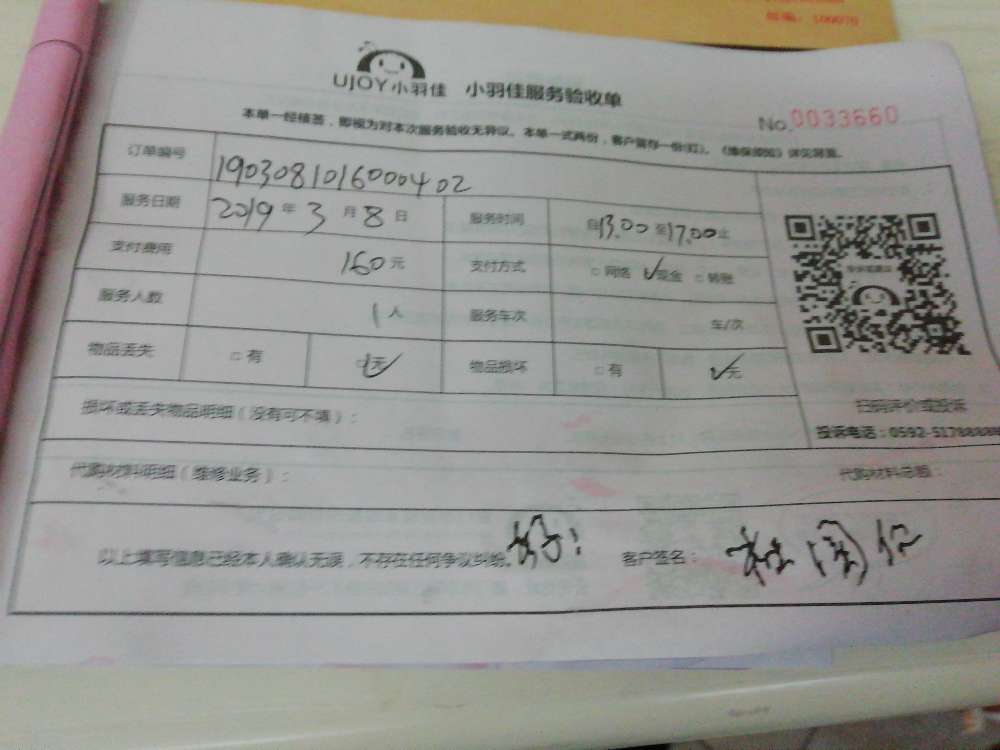 邮编：100070
UJOY小羽佳 小羽佳服务验收单
No.0033660
本单一经签署，即视为对本次服务验收无异议。本单一式两份，客户留存一份(红)。《维保须知》详见背面。
订单编号 1903081016000402
服务日期 2019年3月8日 服务时间 自13:00至17:00止
支付费用 160元 支付方式 □网络 ✓现金 □转账
服务人数 1人 服务车次 车/次
物品丢失 □有 ✓无 物品损坏 □有 ✓无
扫码评价或投诉
投诉电话：0592-5178888
损坏或丢失物品明细（没有可不填）：
代购材料明细（维修业务）： 代购材料总额：
以上填写信息已经本人确认无误，不存在任何争议纠纷。好！ 客户签名：